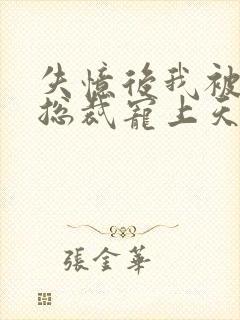 失憶後我被
总裁寵上天
張金華